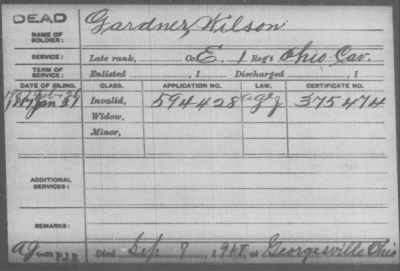 DEAD
NAME OF SOLDIER:
Gardner, Wilson
SERVICE:
Late rank, Co. E, 1 Reg't Ohio Cav.
TERM OF SERVICE:
Enlisted , 1 Discharged , 1
DATE OF FILING. CLASS. APPLICATION NO. LAW. CERTIFICATE NO.
Jan 27 Invalid, 594428 375474
Widow,
Minor,
ADDITIONAL SERVICES:
REMARKS:
Died Sep 7 1918, at Georgesville Ohio